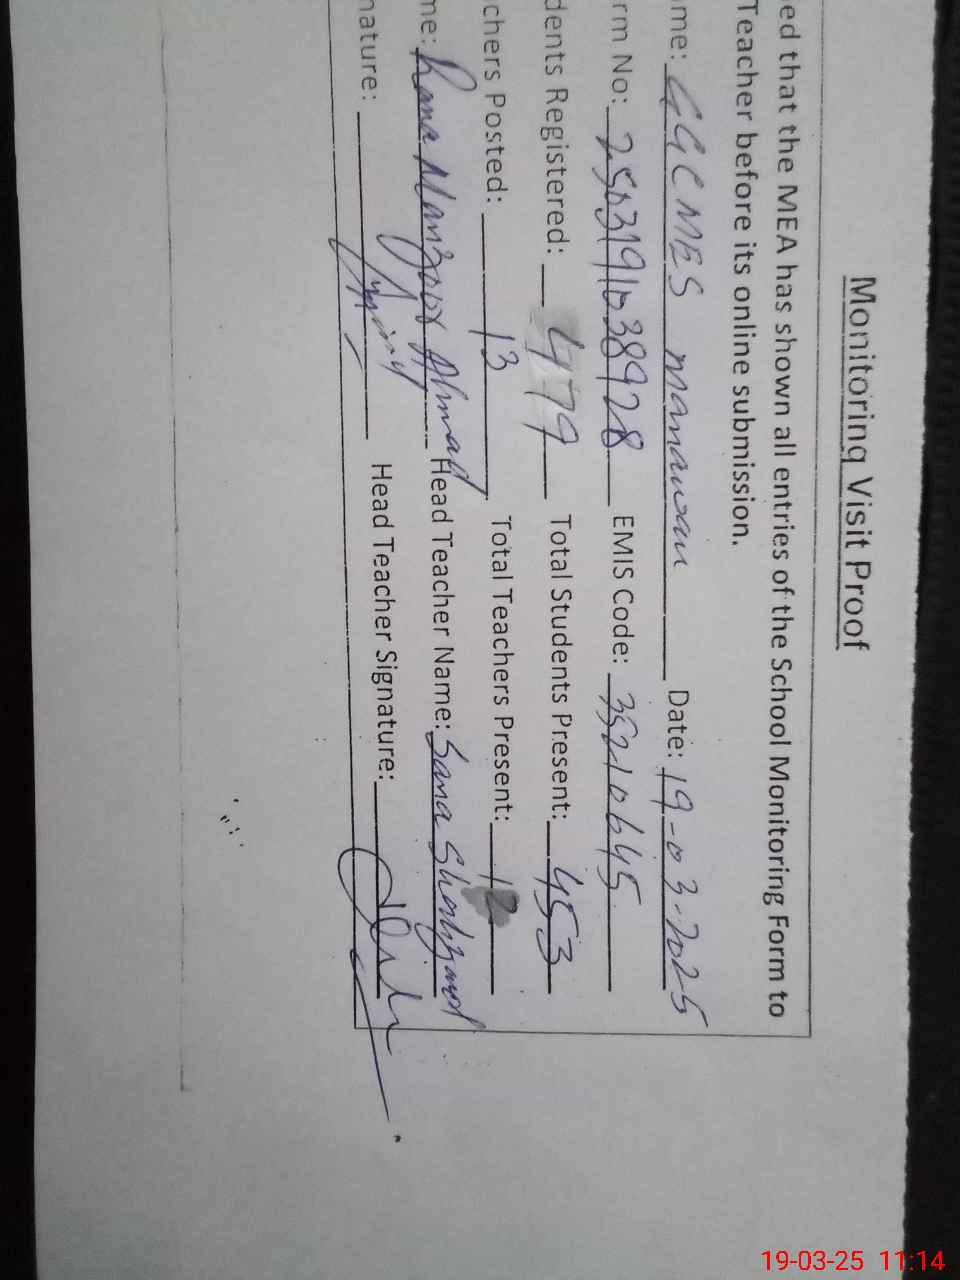 Monitoring Visit Proof
ed that the MEA has shown all entries of the School Monitoring Form to
Teacher before its online submission.
me: GGCMES manawan Date: 19-03-2025
rm No: 2503191038928 EMIS Code: 35210645
dents Registered: 479 Total Students Present: 453
chers Posted: 13 Total Teachers Present: 12
me: Rana Manzoor Ahmad Head Teacher Name: Sana
nature: Head Teacher Signature:
19-03-25 11:14